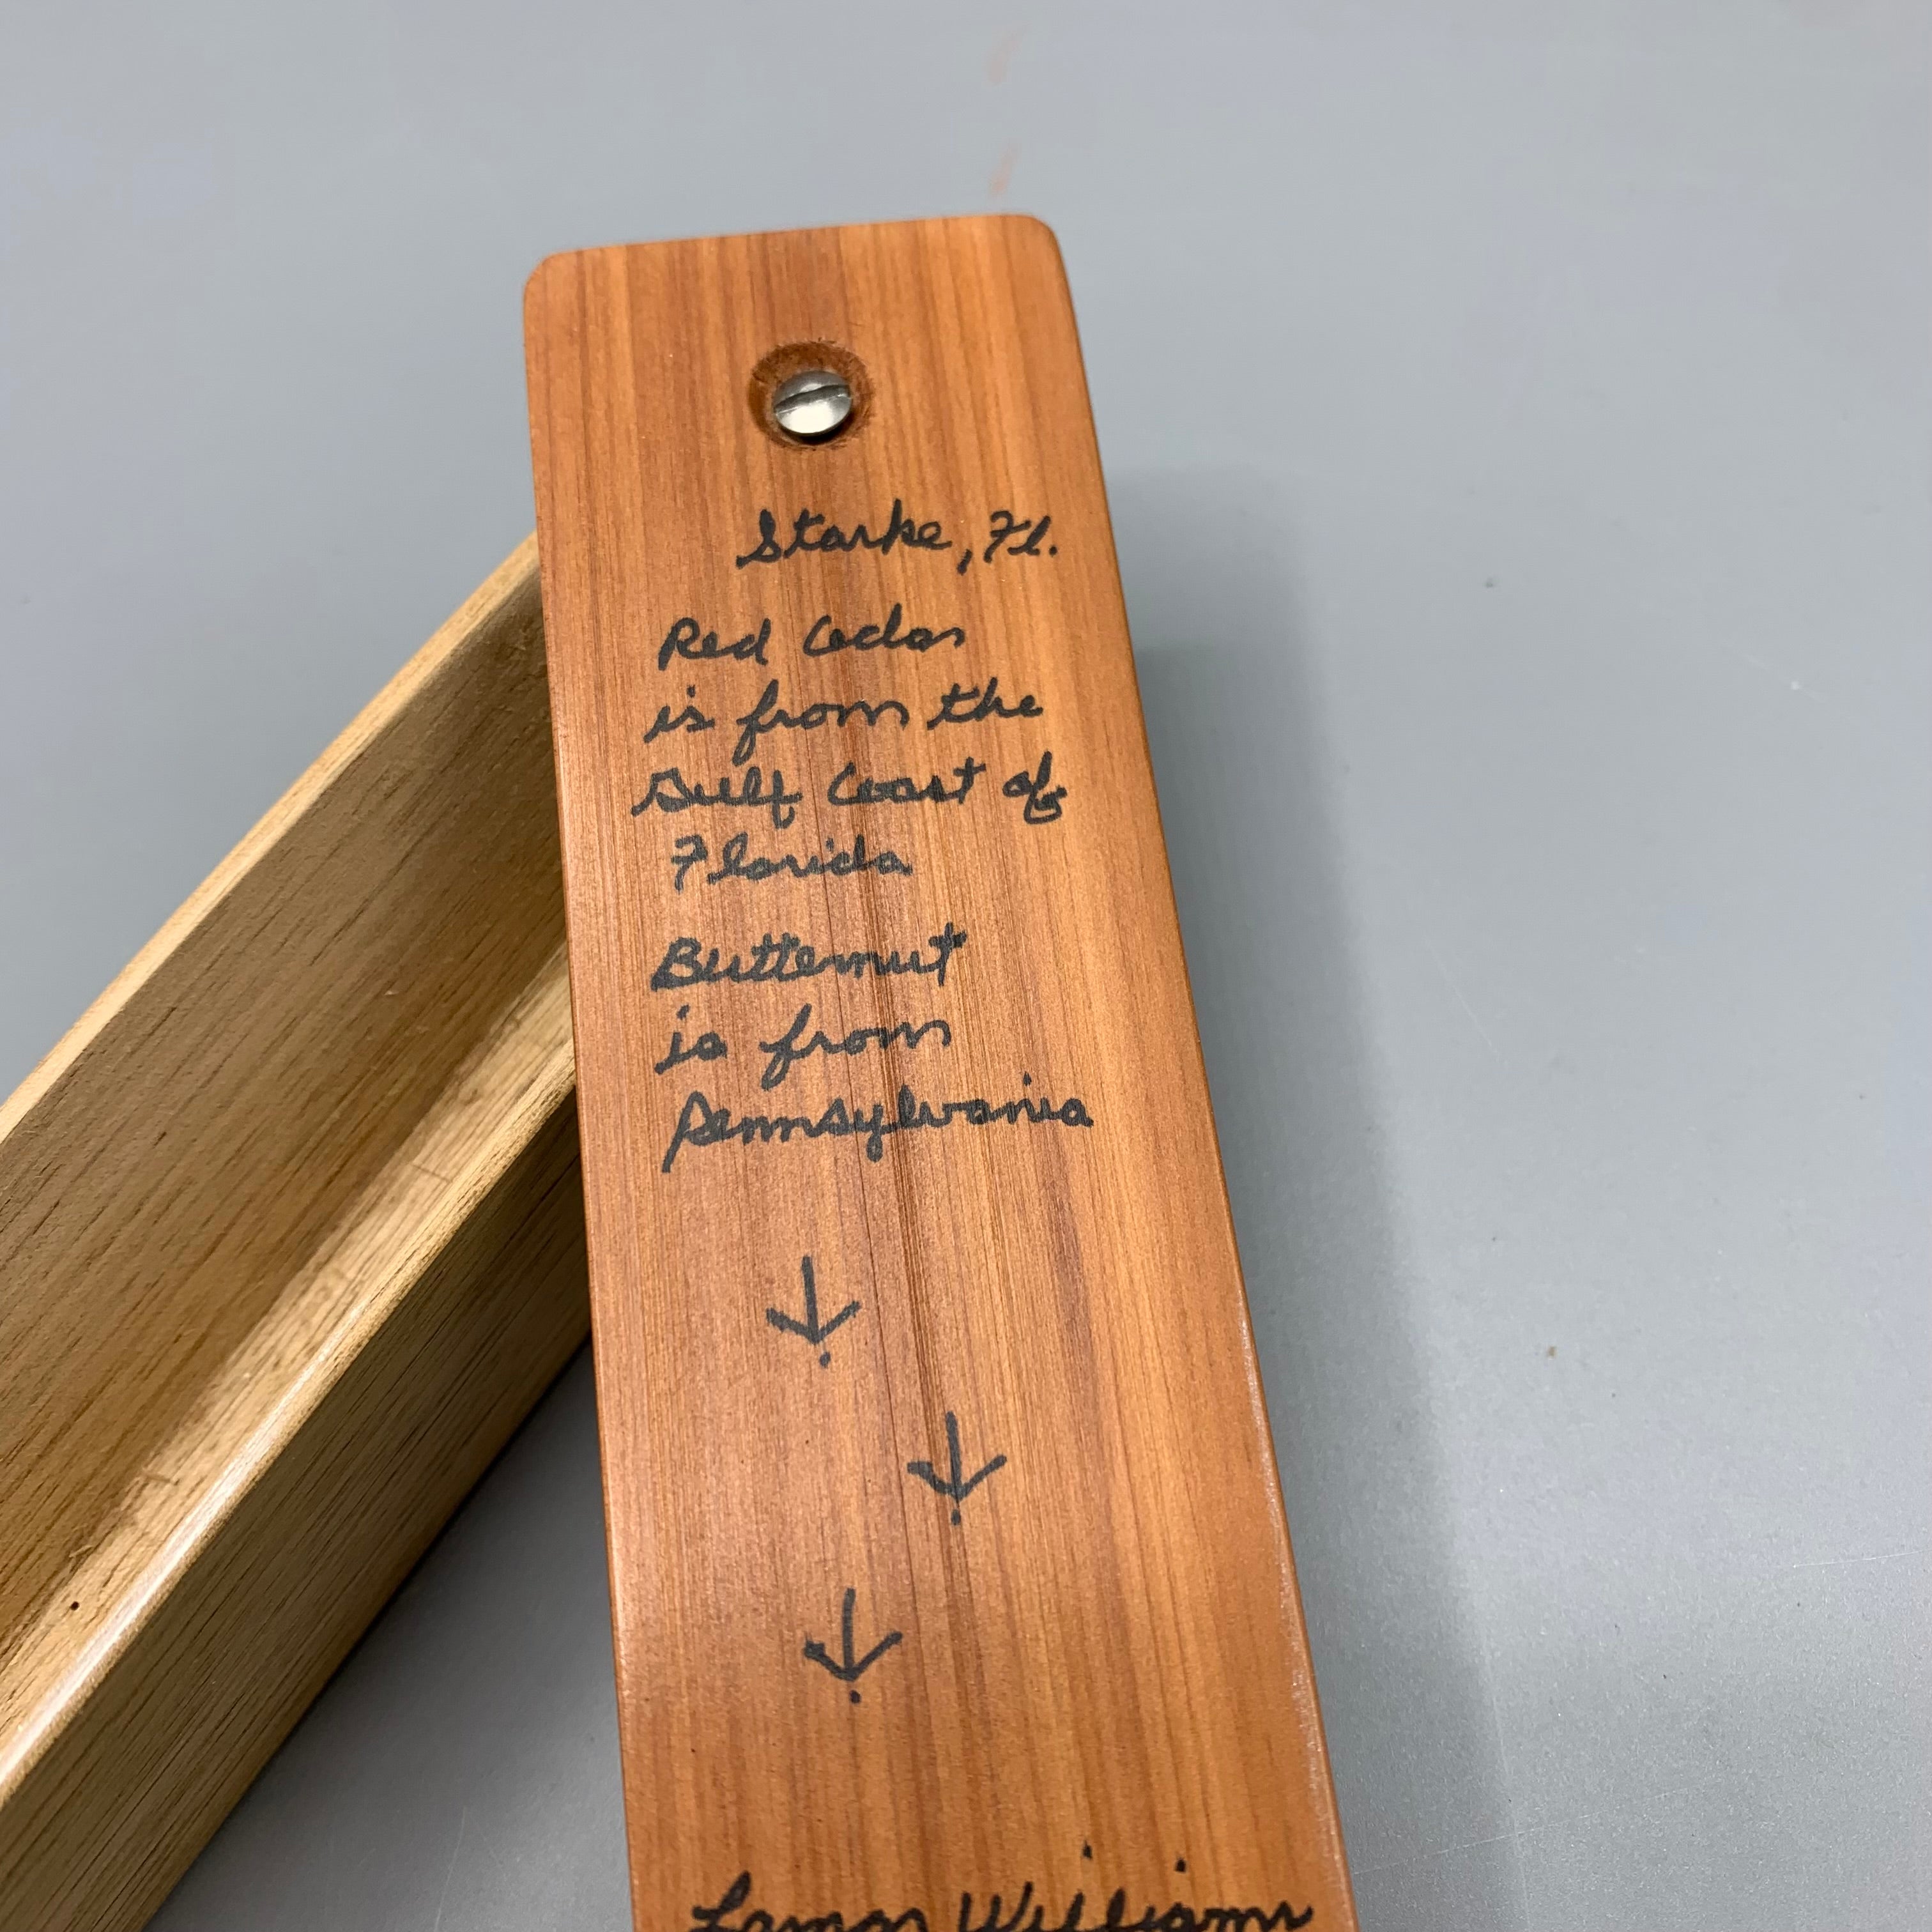 Starke, Fl.
Red Cedar
is from the
Gulf Coast of
Florida
Butternut
is from
Pennsylvania
Lamar Williams